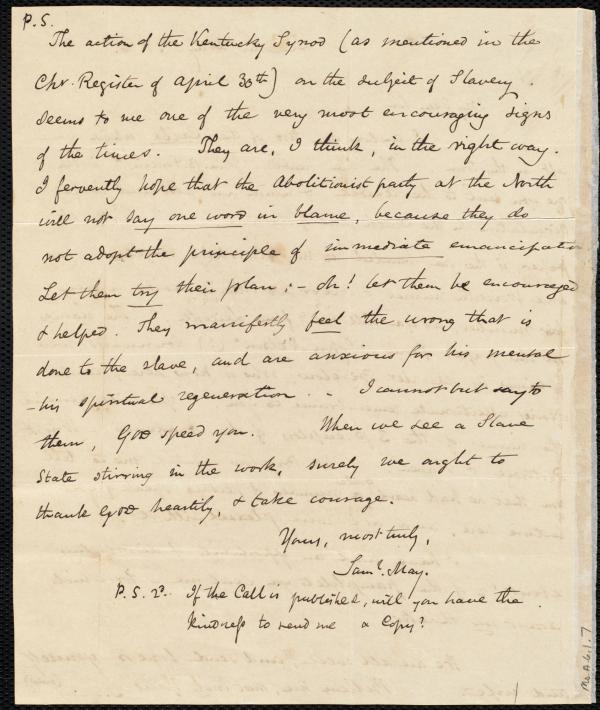 P.S.
The action of the Kentucky Synod (as mentioned in the
Chr. Register of April 30th) on the subject of Slavery.
seems to me one of the very most encouraging signs
of the times. They are, I think, in the right way.
I fervently hope that the Abolitionist party at the North
will not say one word in blame, because they do
not adopt the principle of immediate emancipation
Let them try their plan ; – oh! let them be encouraged
& helped. They manifestly feel the wrong that is
done to the slave, and are anxious for his mental
– his spiritual regeneration. – I cannot but say to
them, God speed you. When we see a Slave
State stirring in the work, surely we ought to
thank God heartily, & take courage.
Yours, most truly,
Saml. May.
P.S. 2d. If the Call is published, will you have the
kindness to send me a Copy?
Ms. A.6.1.7